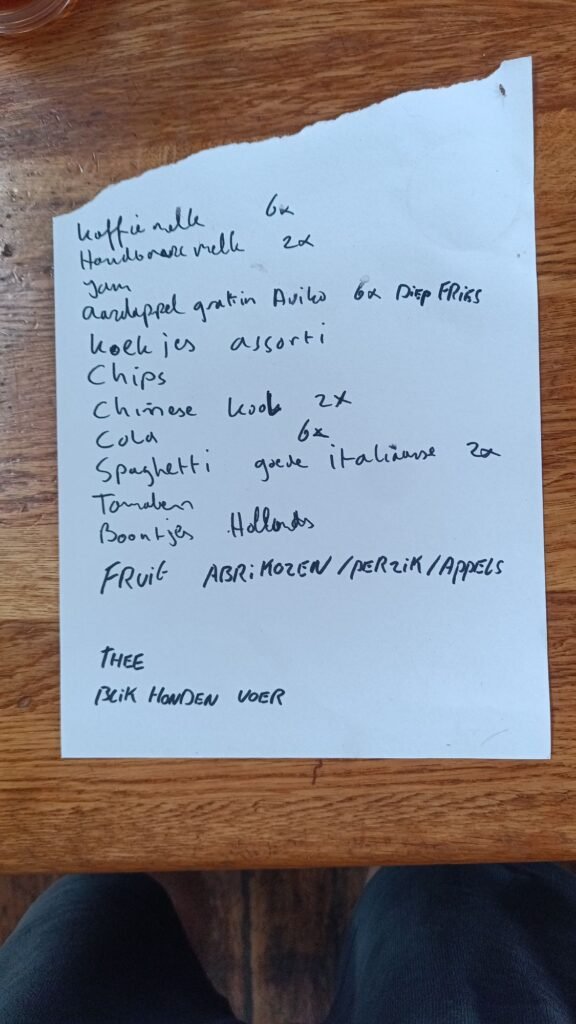 koffie melk 6x
Houdbare melk 2x
Jam
aardappel gratin Aviko 6x DIEP FRIES
koekjes assorti
Chips
Chinese kool 2x
Cola 6x
Spaghetti goede italiaanse 2x
Tomaten
Boontjes Hollands
FRUIT ABRIKOZEN/PERZIK/APPELS
THEE
BLIK HONDEN VOER